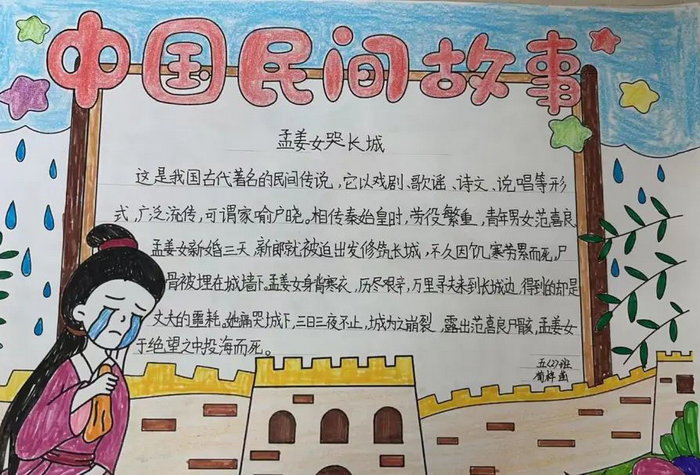 中国民间故事
孟姜女哭长城
这是我国古代著名的民间传说，它以戏剧、歌谣、诗文、说唱等形
式，广泛流传，可谓家喻户晓。相传秦始皇时，劳役繁重，青年男女范喜良
孟姜女新婚三天，新郎就被迫出发修筑长城，不久因饥寒劳累而死，尸
骨被埋在城墙下。孟姜女身背寒衣，历尽艰辛，万里寻夫来到长城边，得到的却是
丈夫的噩耗。她痛哭城下，三日三夜不止，城为之崩裂，露出范喜良尸骸，孟姜女
于绝望之中投海而死。
五（2）班